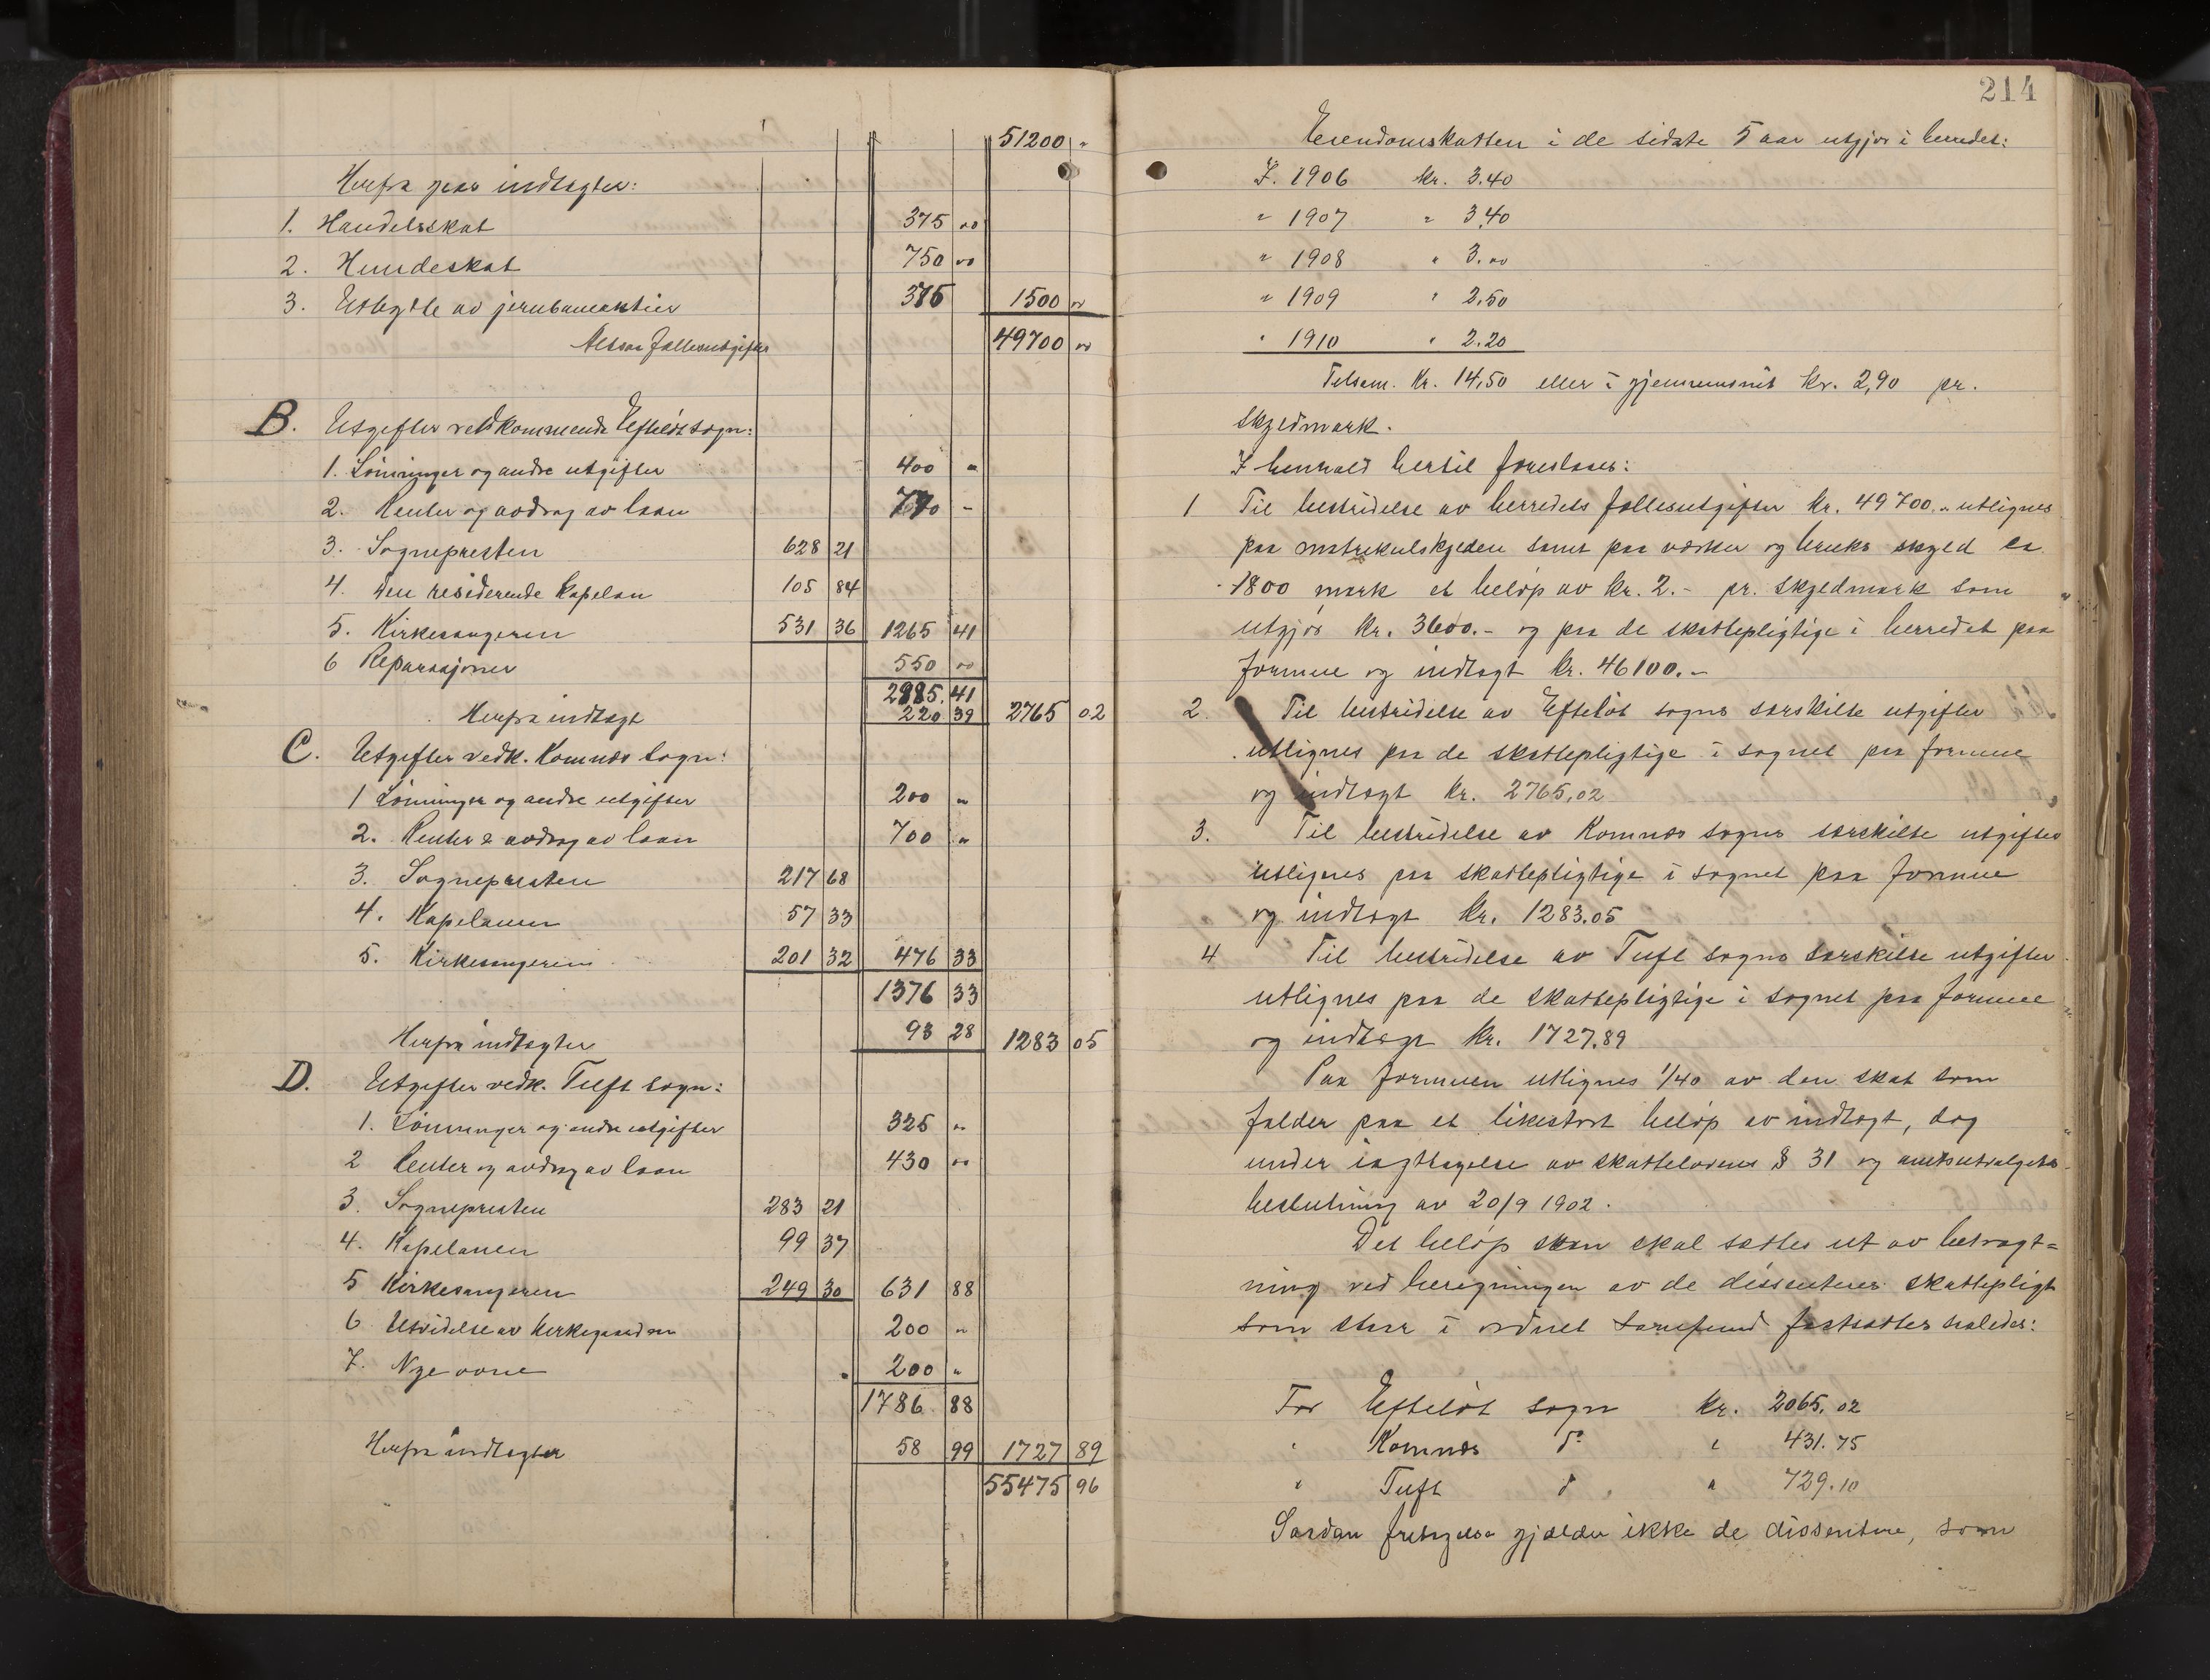 51200 "
Herfra gaar indtægter:
1. Handelsskat 375 00
2. Hundeskat 750 00
3. Utbytte av jernbaneaktier 375 1500 00
Altsaa fællesutgifter 49700 00
B. Utgifter vedkommende Efteløt sogn:
1. Lønninger og andre utgifter 400 "
2. Renter og avdrag av laan 770 -
3. Sognepresten 628 21
4. Den residerende kapelan 105 84
5. Kirkesangeren 531 36 1265 41
6 Reparasjoner 550 00
2985.41
Herfra indtægt 220 39 2765 02
C. Utgifter vedk. Komnæs sogn:
1 Lønninger og andre utgifter 200 "
2. Renter & avdrag av laan 700 "
3. Sognepresten 217 68
4. Kapelanen 57 33
5. Kirkesangeren 201 32 476 33
1376 33
Herfra indtægter 93 28 1283 05
D. Utgifter vedk. Tuft sogn:
1. Lønninger og andre utgifter 325 "
2 Renter og avdrag av laan 430 00
3. Sognepresten 283 21
4. Kapelanen 99 37
5 Kirkesangeren 249 30 631 88
6 Utvidelse av kirkegaarden 200 "
7. Nye ovne 200 "
1786 88
Herfra indtægter 58 99 1727 89
55475 96
214
Eiendomskatten i de sidste 5 aar utgjør i herredet:
I. 1906 kr. 3.40
" 1907 " 3.40
" 1908 " 3.00
" 1909 " 2.50
" 1910 " 2.20
Tilsam. kr. 14,50 eller i gjennemsnit kr. 2,90 pr.
skyldmark.
I henhold hertil foreslaaes:
1 Til bestridelse av herredets fællesutgifter kr. 49700." utlignes
paa matrikulskylden samt paa værker og bruks skyld ca
1800 mark et beløp av kr. 2.- pr. skyldmark som
utgjør kr. 3600.- og paa de skattepligtige i herredet paa
formue og indtægt kr. 46100.-
2. Til bestridelse av Efteløt sogns særskilte utgifter
utlignes paa de skattepligtige i sognet paa formue
og indtægt kr. 2765,02
3. Til bestridelse av Komnæs sogns særskilte utgifter
utlignes paa skattepligtige i sognet paa formue
og indtægt kr. 1283.05
4 Til bestridelse av Tuft sogns særskilte utgifter
utlignes paa de skattepligtige i sognet paa formue
og indtægt kr. 1727.89
Paa formuen utlignes 1/40 av den skat som
falder paa et likestort beløp av indtægt, dog
under iagttagelse av skattelovens § 31 og amtsutvalgets
beslutning av 20/9 1902.
Det beløp som skal sættes ut av betragt=
ning ved beregningen av de dissenteres skattepligt
som staar i ordnet samfund fastsættes saaledes:
For Efteløt sogn kr. 2065.02
" Komnæs do " 431.75
" Tuft do " 729.10
Saadan fritagelse gjælder ikke de dissentere, som